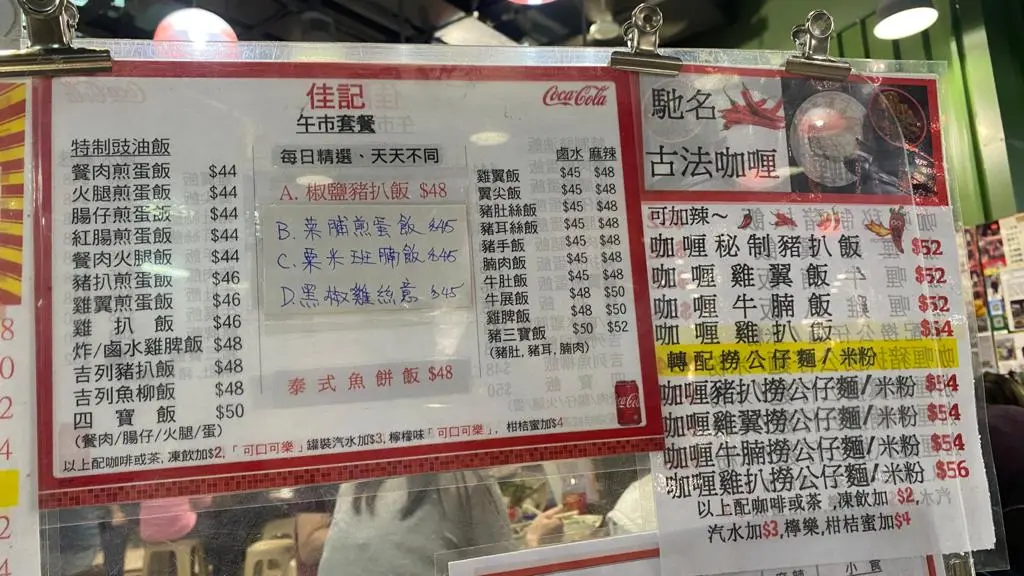 佳記
Coca-Cola
午市套餐
特制豉油飯
餐肉煎蛋飯 $44
火腿煎蛋飯 $44
腸仔煎蛋飯 $44
紅腸煎蛋飯 $44
餐肉火腿飯 $44
豬扒煎蛋飯 $46
雞翼煎蛋飯 $46
雞扒飯 $46
炸/鹵水雞脾飯 $48
吉列豬扒飯 $48
吉列魚柳飯 $48
四寶飯 $50
(餐肉/腸仔/火腿/蛋)
每日精選、天天不同
A. 椒鹽豬扒飯 $48
B. 菜脯煎蛋飯 $45
C. 粟米班腩飯 $45
D. 黑椒雞絲意 $45
泰式魚餅飯 $48
鹵水 麻辣
雞翼飯 $45 $48
翼尖飯 $45 $48
豬肚絲飯 $45 $48
豬耳絲飯 $45 $48
豬手飯 $45 $48
腩肉飯 $45 $48
牛肚飯 $45 $48
牛展飯 $48 $50
雞脾飯 $48 $50
豬三寶飯 $50 $52
(豬肚,豬耳,腩肉)
以上配咖啡或茶,凍飲加$2,「可口可樂」罐裝汽水加$3,檸檬味「可口可樂」,柑桔蜜加$4
馳名
古法咖喱
可加辣~
咖喱秘制豬扒飯 $52
咖喱雞翼飯 $52
咖喱牛腩飯 $52
咖喱雞扒飯 $54
轉配撈公仔麵/米粉
咖喱豬扒撈公仔麵/米粉 $54
咖喱雞翼撈公仔麵/米粉 $54
咖喱牛腩撈公仔麵/米粉 $54
咖喱雞扒撈公仔麵/米粉 $56
以上配咖啡或茶,凍飲加$2,
汽水加$3,檸樂,柑桔蜜加$4
小食